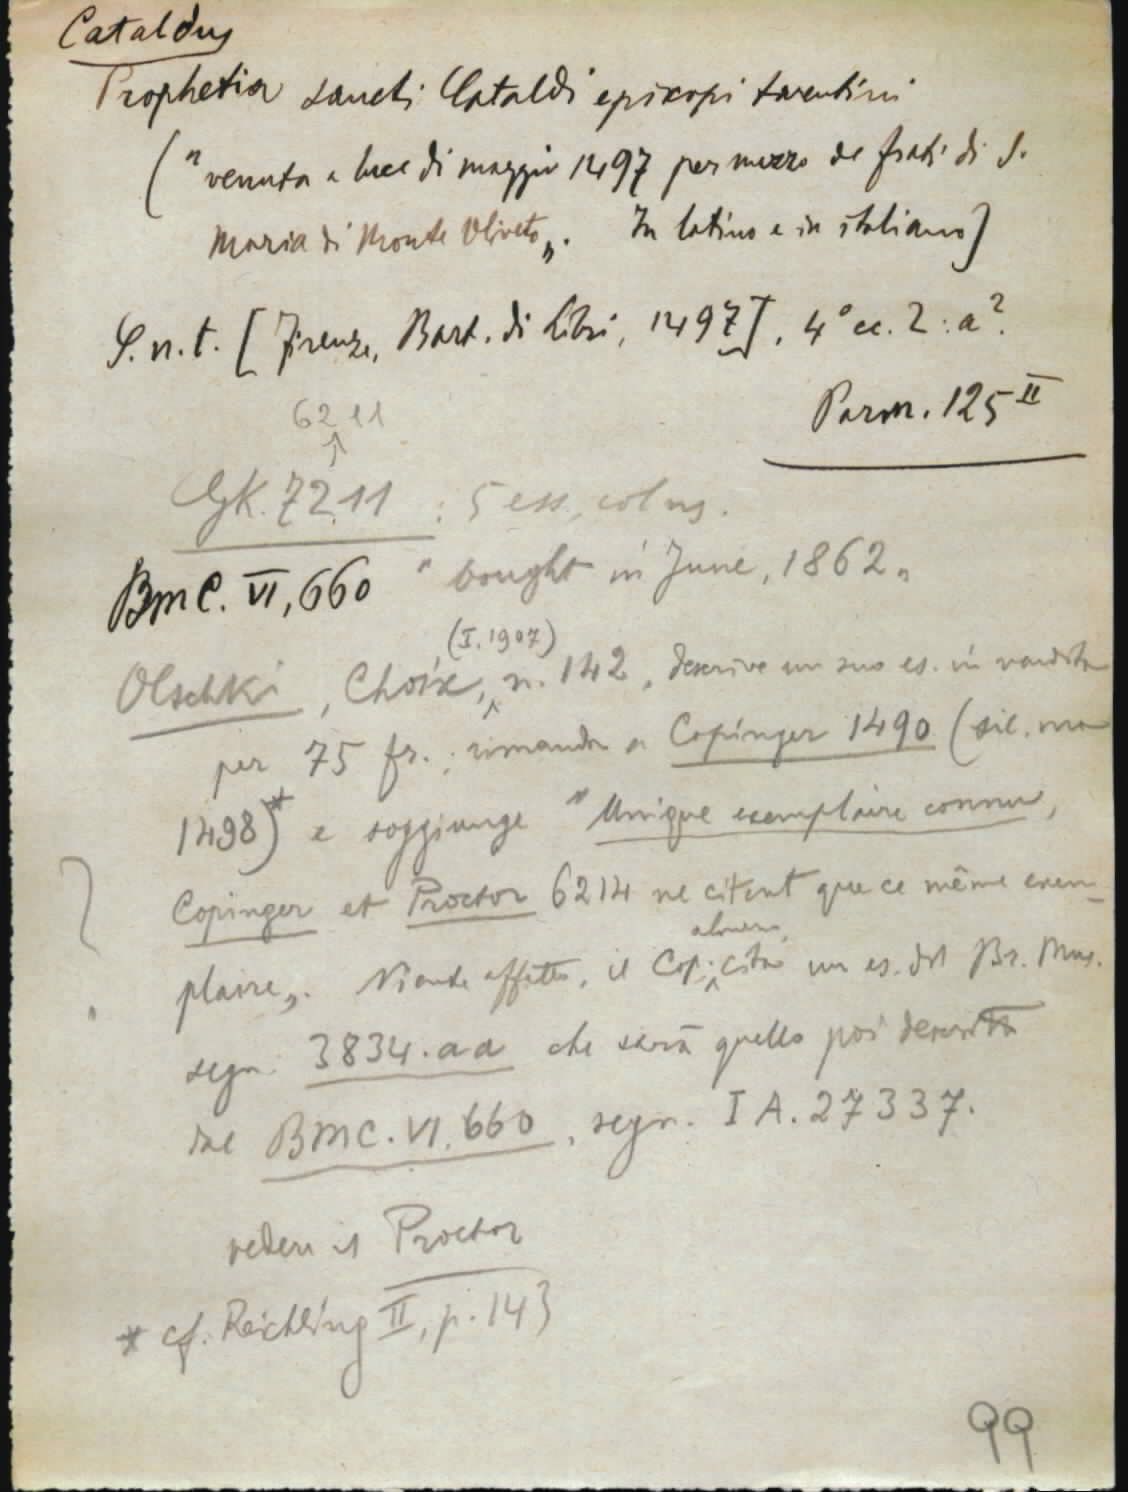 Cataldus
Prophetia sancti Cataldi episcopi tarentini
("venuta a luce di maggio 1497 per mezzo de frati di S.
Maria di Monte Oliveto„. In latino e in italiano)
S.n.t. [Firenze, Bart. di Libri, 1497], 4° cc. 2: a².
Parm. 125 II
6211
↑
GK. 7211 : 5 ess.,
BMC. VI, 660 "bought in June, 1862„
(I. 1907)
Olschki, Choix, n. 142, descrive un suo es. in vendita
per 75 fr.; rimanda a Copinger 1490 (sic. ma
1498)* e soggiunge "Unique exemplaire connu,
? Copinger et Proctor 6214 ne citent que ce même exem-
almeno
plaire„. Niente affatto, il Cop. cita un es. del Br. Mus.
segn. 3834.aa che sarà quello poi descritto
dal BMC. VI. 660, segn. IA. 27337.
vedere il Proctor
* cf. Reichling II, p. 143
99